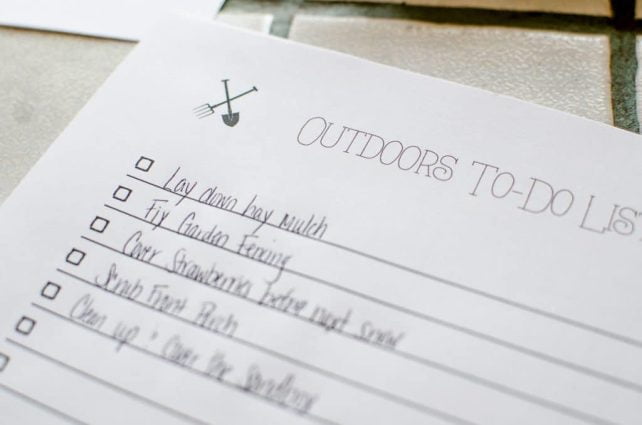 OUTDOORS TO-DO LIS
Lay down hay mulch
Fix Garden Fencing
Cover Strawberries before next snow
Scrub Front Porch
Clean up & Cover the Sandbox